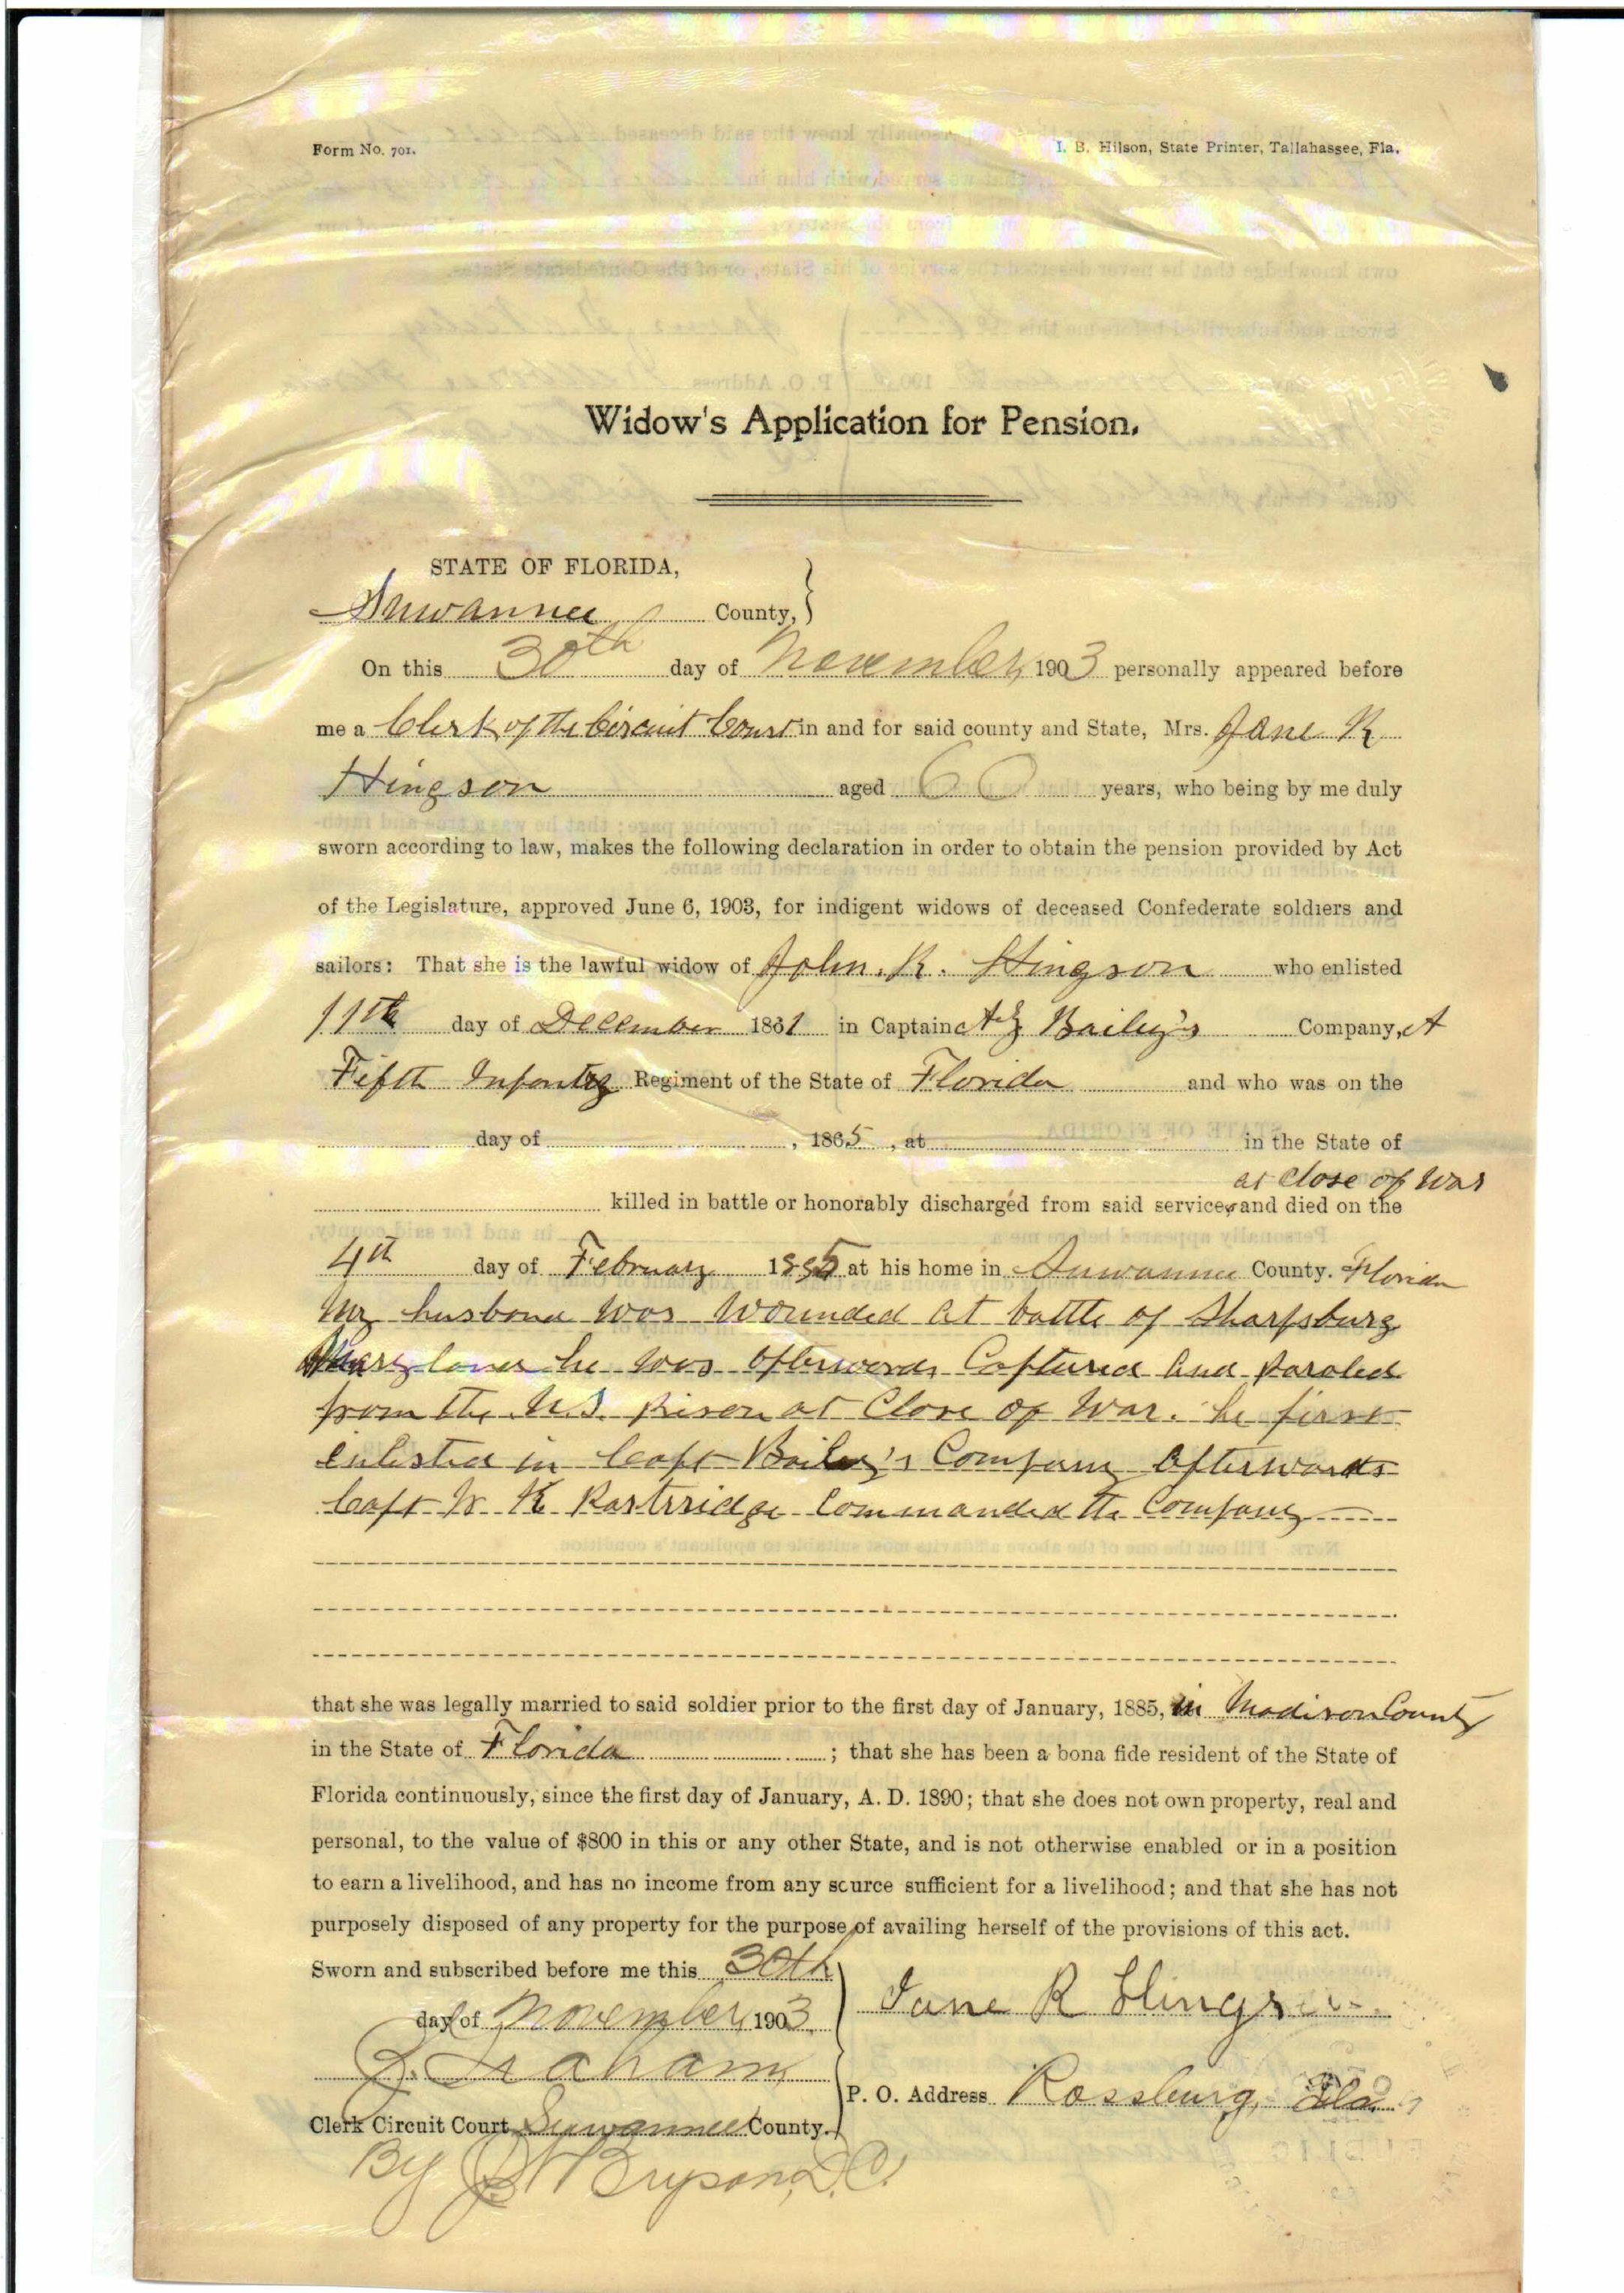 Form No. 701.
I. B. Hilson, State Printer, Tallahassee, Fla.
Widow's Application for Pension.
STATE OF FLORIDA,
Suwannee County,
On this 30th day of November, 1903 personally appeared before
me a Clerk of the Circuit Court in and for said county and State, Mrs. Jane R
Hingson aged 60 years, who being by me duly
sworn according to law, makes the following declaration in order to obtain the pension provided by Act
of the Legislature, approved June 6, 1903, for indigent widows of deceased Confederate soldiers and
sailors: That she is the lawful widow of John. R. Hingson who enlisted
11th day of December 1861 in Captain Bailey's Company, A
Fifth Infantry Regiment of the State of Florida and who was on the
day of , 1865, at in the State of
at Close of War
killed in battle or honorably discharged from said service, and died on the
4th day of February 1885 at his home in Suwannee County. Florida
My husband was wounded at battle of Sharpsburg
he was afterwards Captured and paroled
from the U.S. Prison at Close of War. he first
enlisted in Capt Bailey's Company afterwards
Capt W K Partrridge Commanded the Company
that she was legally married to said soldier prior to the first day of January, 1885, in Madison County
in the State of Florida ; that she has been a bona fide resident of the State of
Florida continuously, since the first day of January, A. D. 1890; that she does not own property, real and
personal, to the value of $800 in this or any other State, and is not otherwise enabled or in a position
to earn a livelihood, and has no income from any source sufficient for a livelihood; and that she has not
purposely disposed of any property for the purpose of availing herself of the provisions of this act.
Sworn and subscribed before me this 30th
day of November, 1903.
Jane R Hingson
Graham
P. O. Address Rossburg, Fla.
Clerk Circuit Court Suwannee County.
By Bryson, D.C.